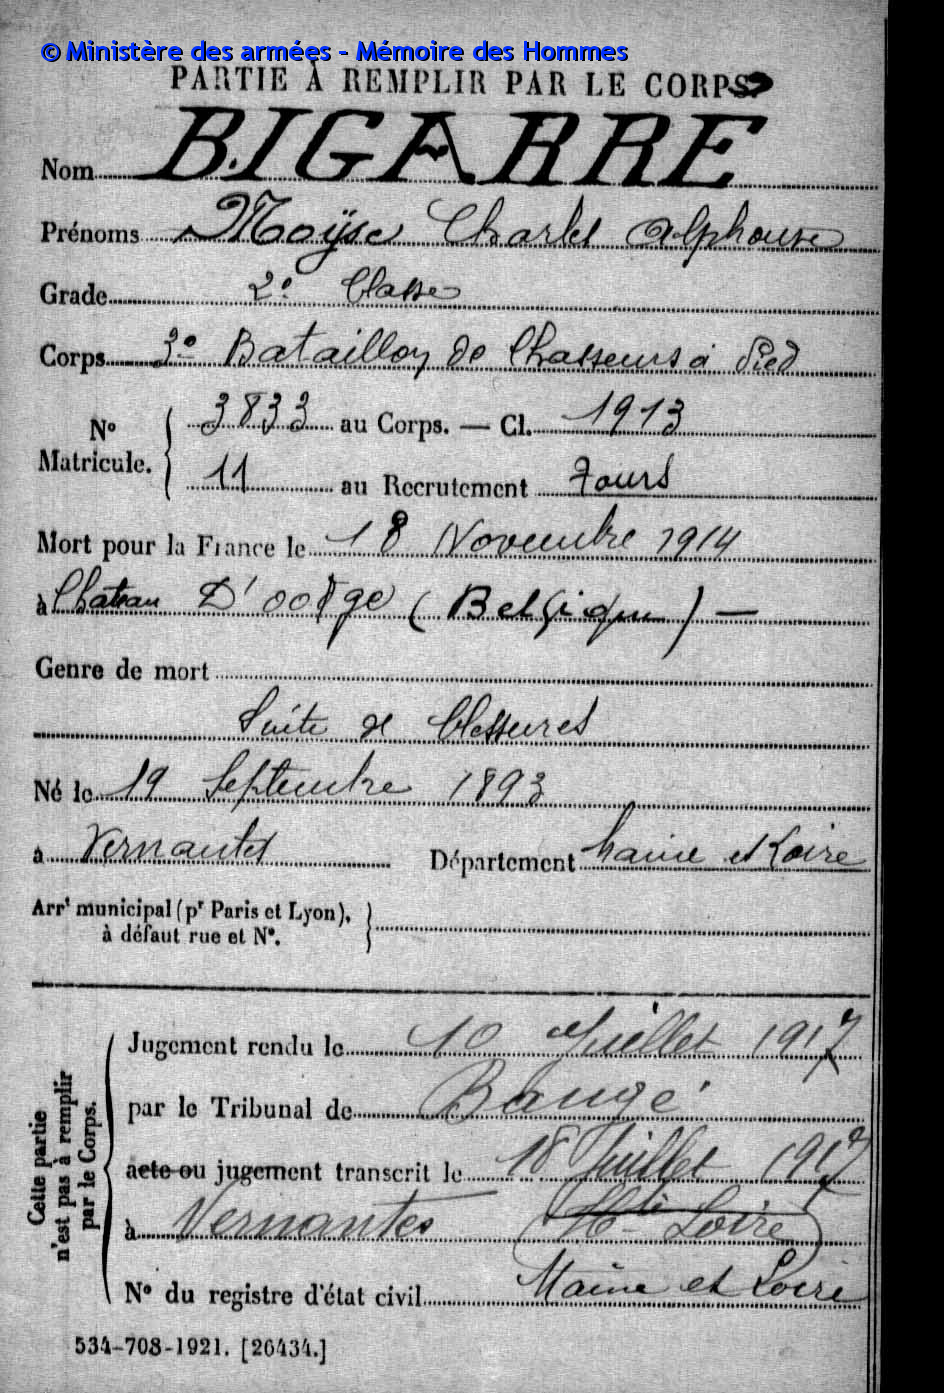 © Ministère des armées - Mémoire des Hommes
PARTIE À REMPLIR PAR LE CORPS.
Nom BIGARRE
Prénoms Moÿse Charles Alphonse
Grade 2e Classe
Corps 3e Bataillon de Chasseurs à Pied
N° Matricule. 3833 au Corps. — Cl. 1913
11 au Recrutement Tours
Mort pour la France le 18 Novembre 1914
à Chateau D' (Belgique) —
Genre de mort
Suite de blessures
Né le 19 Septembre 1893
à Vernantes Département Maine et Loire
Arrt municipal (pr Paris et Lyon),
à défaut rue et N°.
Cette partie n'est pas à remplir par le Corps.
Jugement rendu le 10 Juillet 1917
par le Tribunal de Baugé
acte ou jugement transcrit le 18 Juillet 1917
à Vernantes (Hte Loire)
N° du registre d'état civil Maine et Loire
534-708-1921. [26434.]